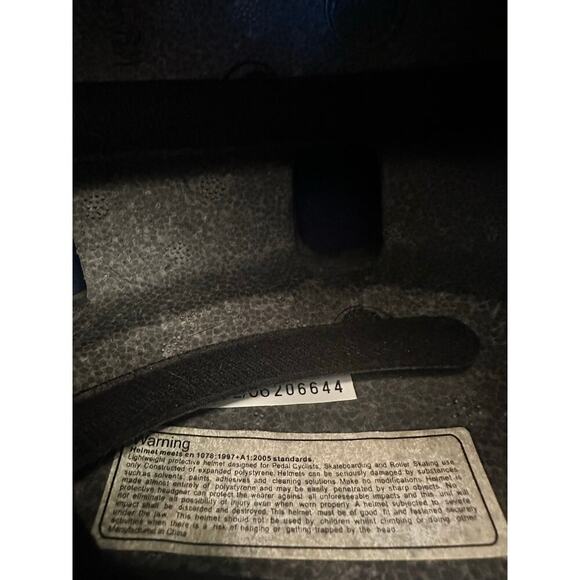 06206644
Warning
Helmet meets en 1078:1997+A1:2005 standards.
Lightweight protective helmet designed for Pedal Cyclists, Skateboarding and Roller Skating use
only. Constructed of expanded polystyrene. Helmets can be seriously damaged by substances
such as solvents, paints, adhesives and cleaning solutions. Make no modifications. Helmet is
made almost entirely of polystyrene and may be easily penetrated by sharp objects. No
protective headgear can protect the wearer against all unforeseeable impacts and this unit will
not eliminate all possibility of injury even when worn properly. A helmet subjected to severe
impact shall be discarded and destroyed. This helmet must be of good fit and fastened securely
under the jaw. This helmet should not be used by children whilst climbing or doing other
activities when there is a risk of hanging or getting trapped by the head.
Manufactured in China